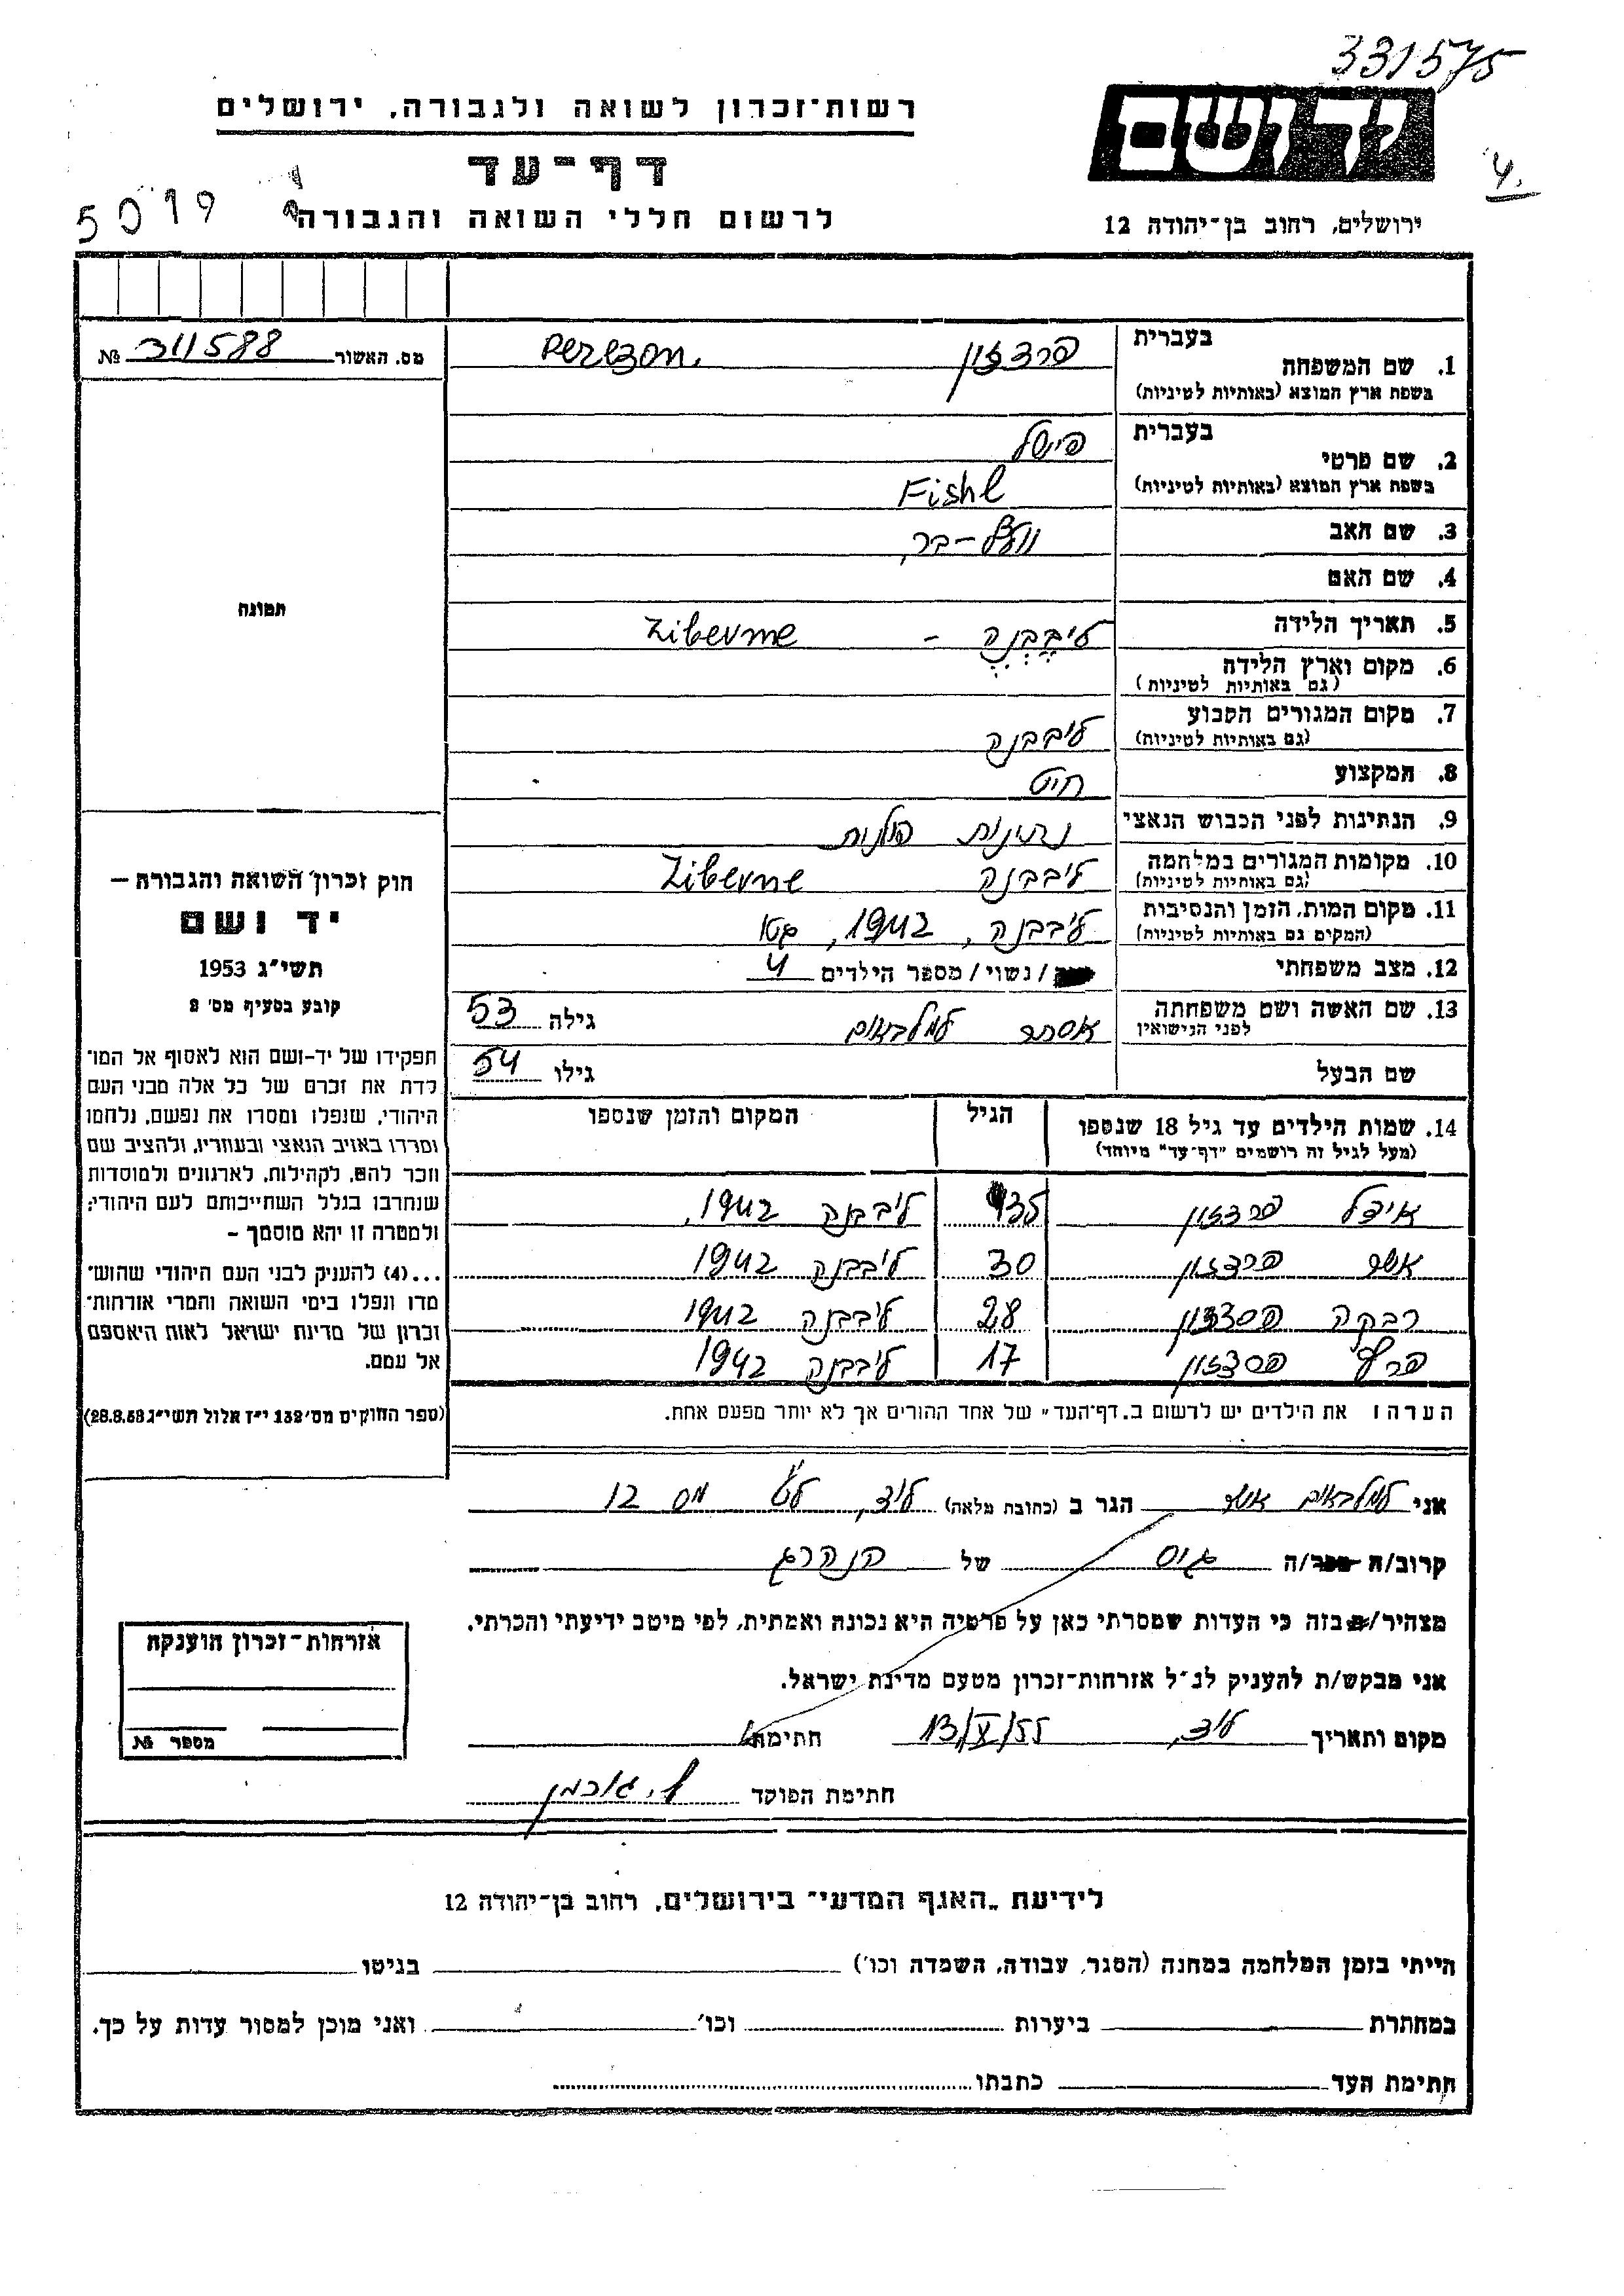 331575
רשות־זכרון לשואה ולגבורה, ירושלים
יד ושם
דף־עד
4.
5019
לרשום חללי השואה והגבורה
ירושלים, רחוב בן־יהודה 12
מס. האשור 311588 №
1. שם המשפחה
בעברית
בשפת ארץ המוצא (באותיות לטיניות)
פרצזון
Perezon.
2. שם פרטי
בעברית פישל
בשפת ארץ המוצא (באותיות לטיניות) Fishl
3. שם האב
4. שם האם
תמונה
5. תאריך הלידה
ליבבנה - Libevne
6. מקום וארץ הלידה
(גם באותיות לטיניות)
7. מקום המגורים הקבוע ליבבנה
(גם באותיות לטיניות)
8. המקצוע חיט
9. הנתינות לפני הכבוש הנאצי נתינות פולנית
10. מקומות המגורים במלחמה ליבבנה Libevne
(גם באותיות לטיניות)
11. מקום המות, הזמן והנסיבות ליבבנה, 1942,
(המקום גם באותיות לטיניות)
12. מצב משפחתי / נשוי / מספר הילדים 4
13. שם האשה ושם משפחתה אסתר גילה 53
לפני הנישואין
שם הבעל גילו 54
14. שמות הילדים עד גיל 18 שנספו הגיל המקום והזמן שנספו
(מעל לגיל זה רושמים "דף־עד" מיוחד)
אידל פרצזון 35 ליבבנה 1942,
אשר פרצזון 30 ליבבנה 1942
רבקה פרצזון 28 ליבבנה 1942
פרצזון 17 ליבבנה 1942
הערה: את הילדים יש לרשום ב„דף־העד" של אחד ההורים אך לא יותר מפעם אחת.
חוק זכרון השואה והגבורה —
יד ושם
תשי"ג 1953
קובע בסעיף מס' 2
תפקידו של יד־ושם הוא לאסוף אל המו־
לדת את זכרם של כל אלה מבני העם
היהודי, שנפלו ומסרו את נפשם, נלחמו
ומרדו באויב הנאצי ובעוזריו, ולהציב שם
וזכר להם, לקהילות, לארגונים ולמוסדות
שנחרבו בגלל השתייכותם לעם היהודי;
ולמטרה זו יהא מוסמך —
...(4) להעניק לבני העם היהודי שהוש־
מדו ונפלו בימי השואה והמרי אזרחות־
זכרון של מדינת ישראל לאות היאספם
אל עמם.
(ספר החוקים מס' 132 י"ז אלול תשי"ג 28.8.53)
אני אשר הגר ב (כתובת מלאה) לוד, מס 12
קרוב/ה /ה גיס של הנהרג
מצהיר/ה בזה כי העדות שמסרתי כאן על פרטיה היא נכונה ואמתית, לפי מיטב ידיעתי והכרתי.
אני מבקש/ת להעניק לנ"ל אזרחות־זכרון מטעם מדינת ישראל.
מקום ותאריך לוד, 13/X/55 חתימת
חתימת הפוקד
אזרחות־זכרון הוענקה
מספר №
לידיעת „האגף המדעי" בירושלים, רחוב בן־יהודה 12
הייתי בזמן המלחמה במחנה (הסגר, עבודה, השמדה וכו') בגיטו
במחתרת ביערות וכו' ואני מוכן למסור עדות על כך.
חתימת העד כתבתו